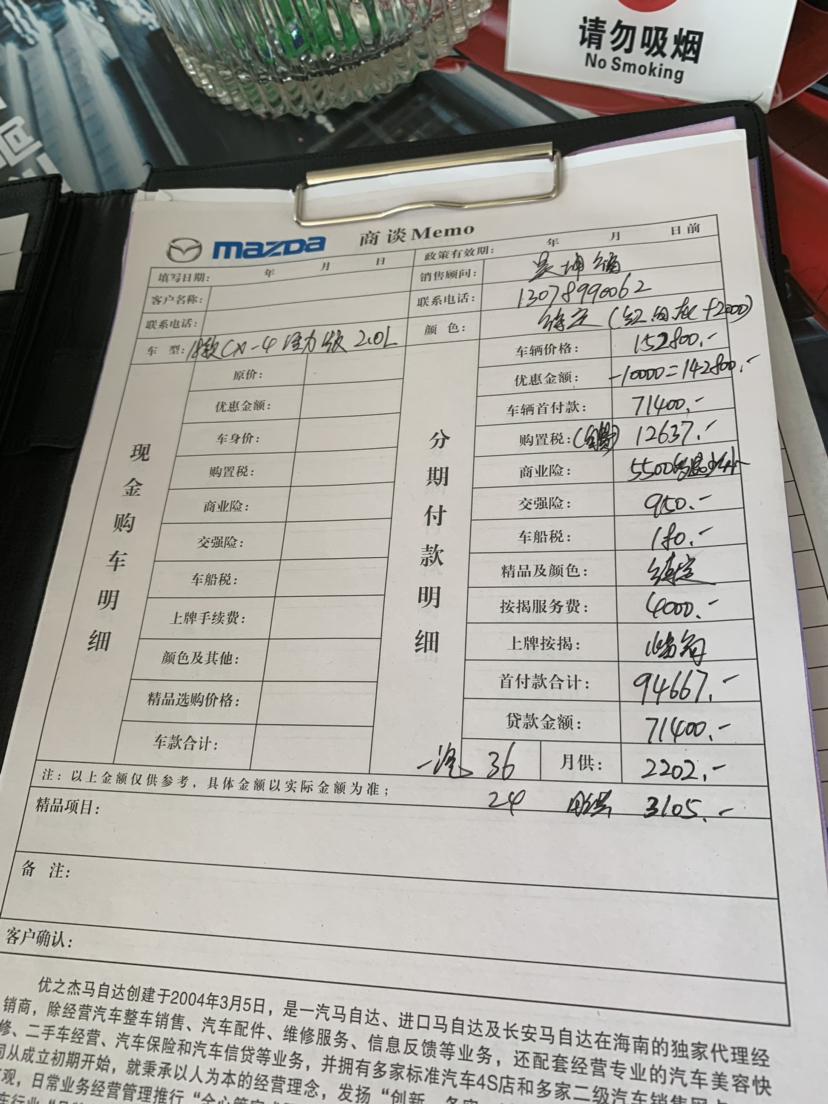 请勿吸烟
No Smoking
mazda 商谈Memo
填写日期: 年 月 日 政策有效期: 年 月 日前
客户名称: 销售顾问:
联系电话: 联系电话: 13078990062
车 型: 18款CX-4 活力版 2.0L 颜 色:
现金购车明细
原价:
优惠金额:
车身价:
购置税:
商业险:
交强险:
车船税:
上牌手续费:
颜色及其他:
精品选购价格:
车款合计:
分期付款明细
车辆价格: 152800.-
优惠金额: -10000=142800.-
车辆首付款: 71400.-
购置税: 12637.-
商业险: 5500
交强险: 950.-
车船税: 180.-
精品及颜色:
按揭服务费: 4000.-
上牌按揭:
首付款合计: 94667.-
贷款金额: 71400.-
一汽 36 月供: 2202.-
24 月供 3105.-
注:以上金额仅供参考,具体金额以实际金额为准;
精品项目:
备 注:
客户确认:
优之杰马自达创建于2004年3月5日,是一汽马自达、进口马自达及长安马自达在海南的独家代理经
销商,除经营汽车整车销售、汽车配件、维修服务、信息反馈等业务,还配套经营专业的汽车美容快
修、二手车经营、汽车保险和汽车信贷等业务,并拥有多家标准汽车4S店和多家二级汽车销售网点
司从成立初期开始,就秉承以人为本的经营理念,发扬“创新
观,日常业务经营管理推行